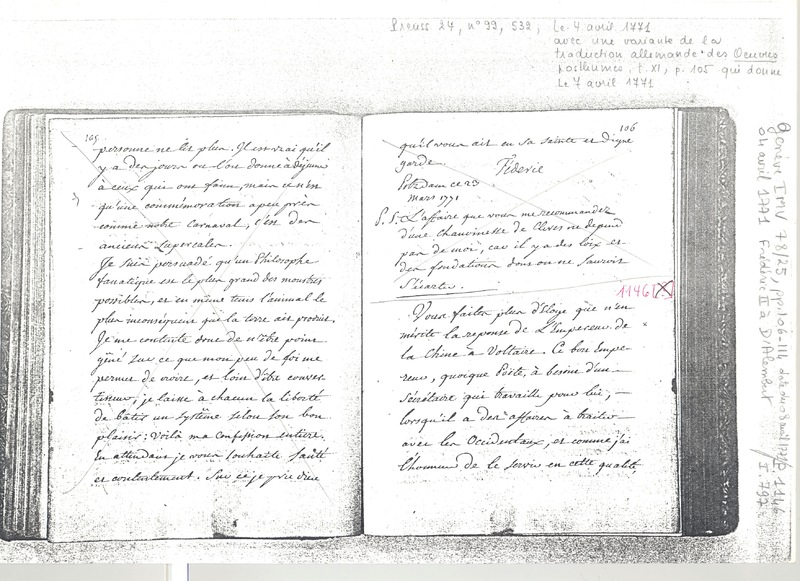 Preuss 24, n° 99, 532, Le 4 avril 1771
avec une variante de la
traduction allemande des Oeuvres
posthumes, t. XI, p. 105 qui donne
Le 7 avril 1771
105
personne ne les plus. Il est vrai qu'il
y a des jours ou l'on donne à déjeuné
à ceux qui ont faim, mais ce n'est
qu'une commémoration a peu près
comme notre Carnaval, c'est des
anciens Lupercales.
Je suis persuadé qu'un Philosophe
fanatique est le plus grand des monstres
possibles, et en même tems l'animal le
plus inconséquent que la terre ait produit.
Je me contente donc de n'être point
gêné sur ce que mon peu de foi me
permet de croire, et loin d'être conver-
tisseur, je laisse à chacun la liberté
de bâtir un systême selon son bon
plaisir; Voilà ma confession entiere.
En attendant je vous souhaite Santé
et contentement. Sur ce je prie Dieu
106
qu'il vous ait en sa sainte et digne
garde.
Fideric
Potzdam ce 23
mars 1771
P. S. L'affaire que vous me recommandez
d'une chanoinesse de Cleves ne depend
pas de moi, car il y a des loix et
des fondations dont on ne sauroit
s'écarter.
1146
Vous faites plus d'Eloge que n'en
mérite la reponse de L'Empereur de
la Chine à Voltaire. Ce bon Empe-
reur, quoique Poëte, à besoin d'un
Sécrétaire qui travaille pour lui,
lorsqu'il a des affaires à traiter
avec les Occidentaux, et comme j'ai
l'honneur de le servir en cette qualité,
Genève IMV 78/25, pp. 106-111 daté du 8 avril 1771
04 avril 1771 Frédéric II à D'Alembert
1146
I 797